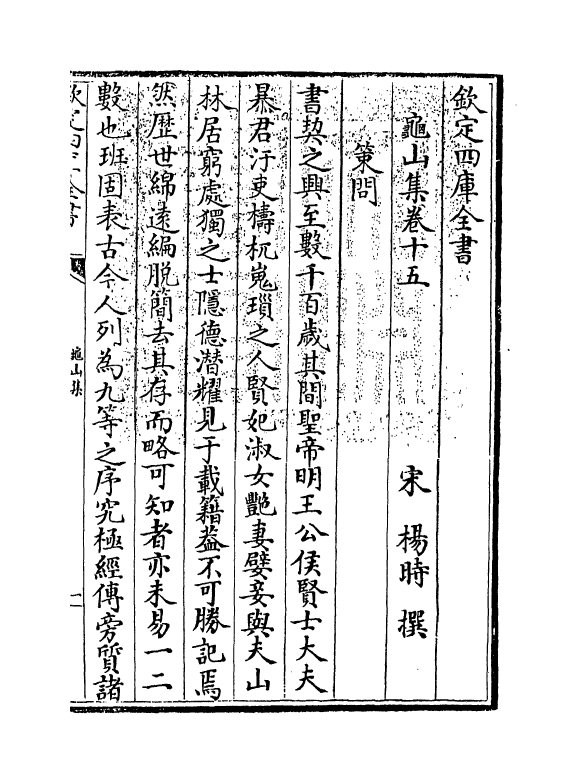 欽定四庫全書
龜山集卷十五
宋 楊時 撰
策問
書契之興至數千百歲其間聖帝明王公侯賢士大夫
暴君汙吏檮杌嵬瑣之人賢妃淑女豔妻嬖妾與夫山
林居窮處獨之士隱德潛耀見于載籍葢不可勝記焉
然歴世綿逺編脱簡去其存而略可知者亦未易一二
數也班固表古今人列為九等之序究極經傳旁質諸
欽定四庫全書
龜山集